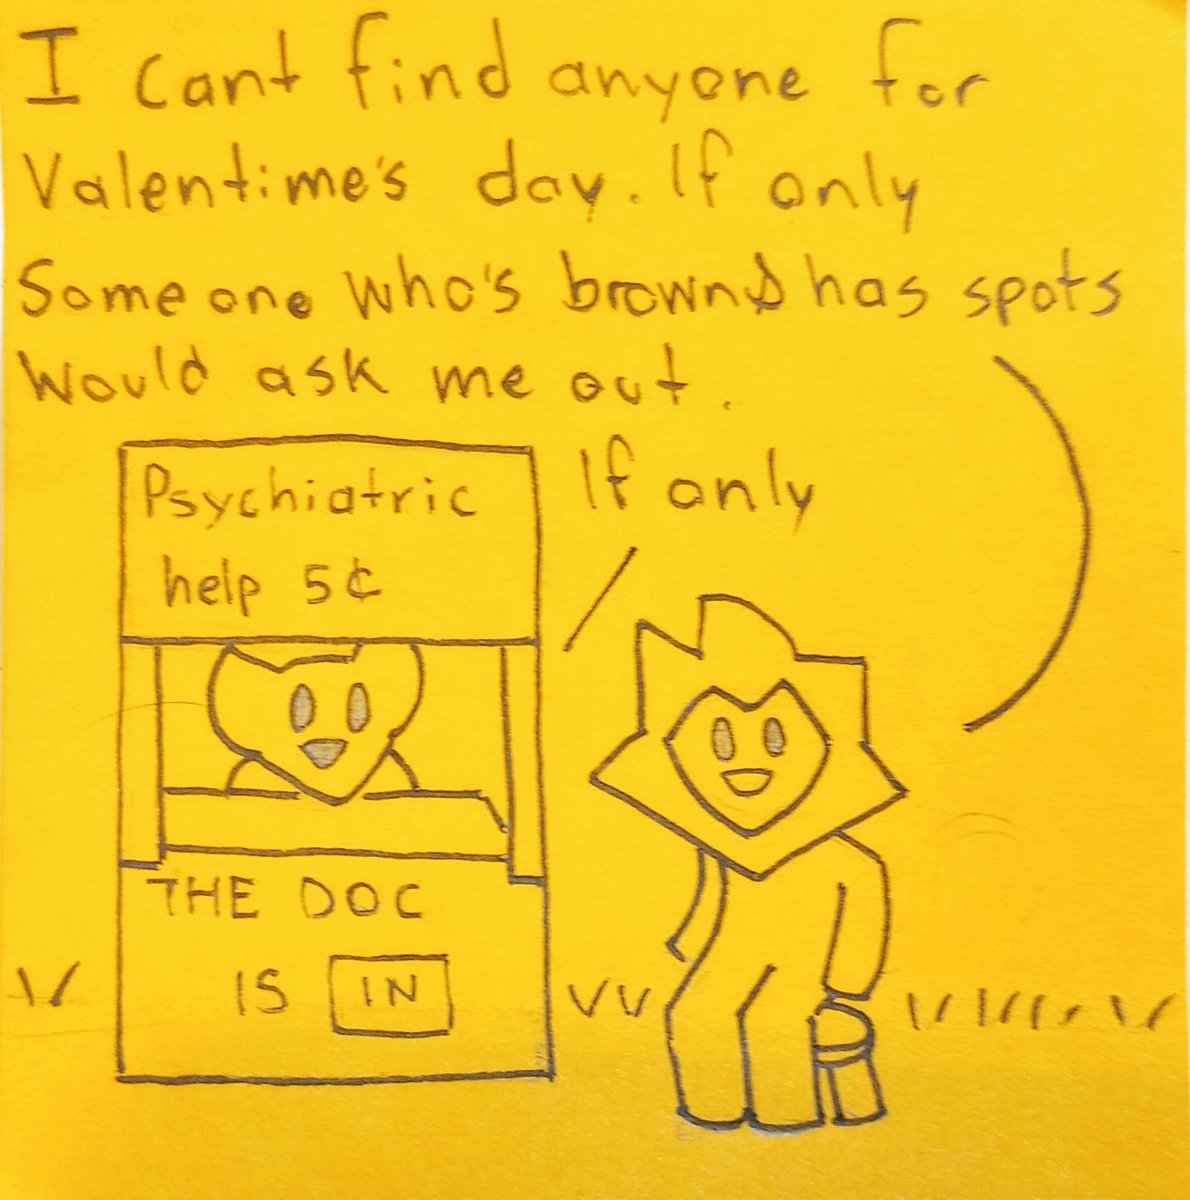 I cant find anyone for
Valentime's day. If only
Someone who's brown & has spots
Would ask me out.
If only
Psychiatric
help 5¢
THE DOC
IS IN